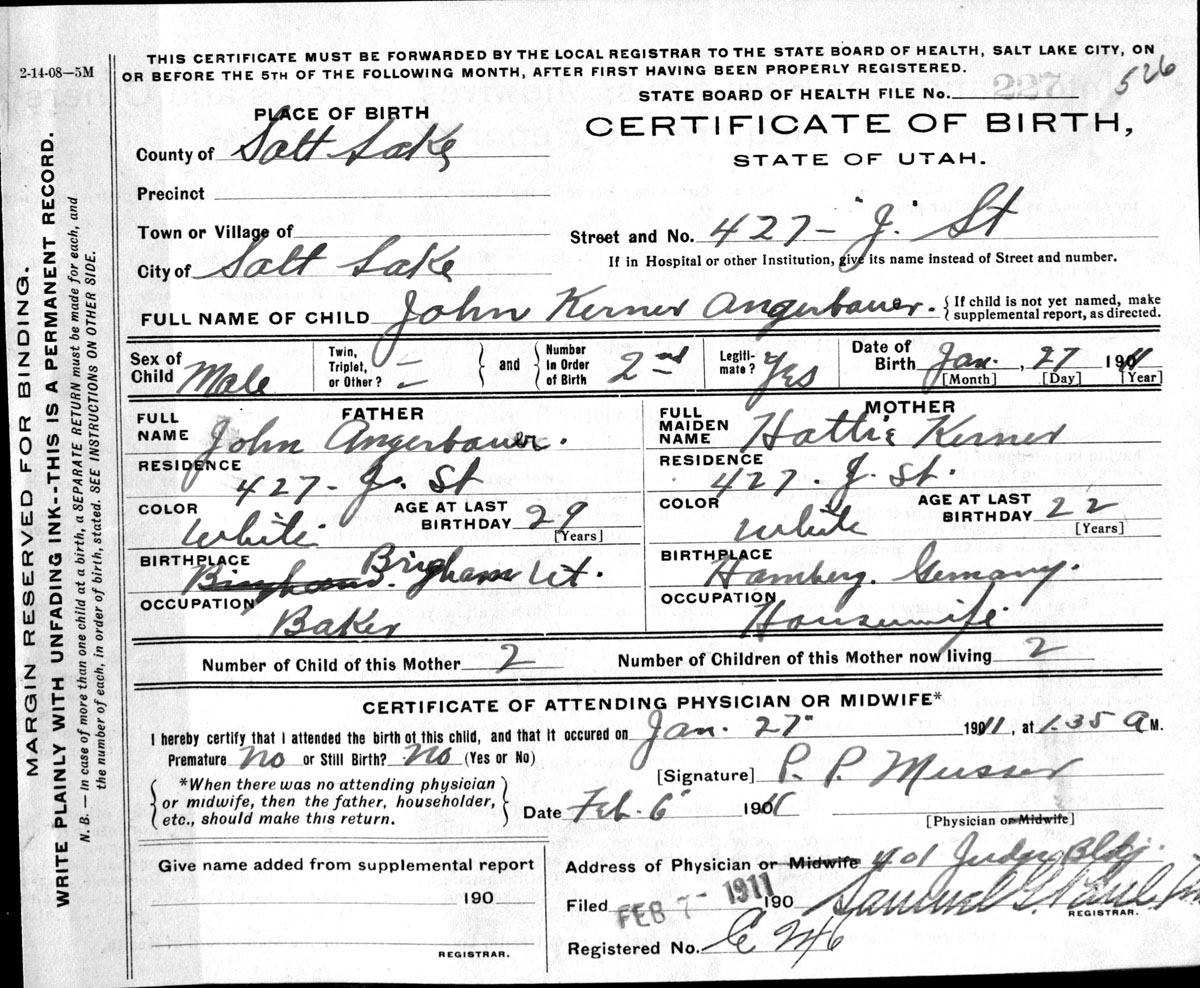 2-14-08—5M
THIS CERTIFICATE MUST BE FORWARDED BY THE LOCAL REGISTRAR TO THE STATE BOARD OF HEALTH, SALT LAKE CITY, ON
OR BEFORE THE 5TH OF THE FOLLOWING MONTH, AFTER FIRST HAVING BEEN PROPERLY REGISTERED.
526
STATE BOARD OF HEALTH FILE No.
PLACE OF BIRTH
CERTIFICATE OF BIRTH,
STATE OF UTAH.
County of Salt Lake
Precinct
Town or Village of
Street and No. 427 - "J" St
City of Salt Lake
If in Hospital or other Institution, give its name instead of Street and number.
FULL NAME OF CHILD John Kerner Angerbauer. {If child is not yet named, make
supplemental report, as directed.
Sex of Child Male
Twin, Triplet, or Other? and Number in Order of Birth 2nd
Legiti-mate? Yes
Date of Birth Jan. 27 1911
[Month] [Day] [Year]
FATHER
FULL NAME John Angerbauer.
RESIDENCE 427 - J. St
COLOR White AGE AT LAST BIRTHDAY 29 [Years]
BIRTHPLACE Bingham. Brigham Ut.
OCCUPATION Baker
MOTHER
FULL MAIDEN NAME Hattie Kerner
RESIDENCE 427. J St.
COLOR White AGE AT LAST BIRTHDAY 22 [Years]
BIRTHPLACE Hamberg. Germany.
OCCUPATION Housewife
Number of Child of this Mother 2 Number of Children of this Mother now living 2
CERTIFICATE OF ATTENDING PHYSICIAN OR MIDWIFE*
I hereby certify that I attended the birth of this child, and that it occured on Jan. 27" 1911, at 1.35 A M.
Premature No or Still Birth? No (Yes or No)
[Signature] P. P. Musser
*When there was no attending physician
or midwife, then the father, householder,
etc., should make this return.
Date Feb. 6" 1911
[Physician or Midwife]
Give name added from supplemental report
190
REGISTRAR.
Address of Physician or Midwife 401 Judge Bldg.
Filed FEB 7 - 1911 190 Samuel G. Paul
REGISTRAR.
Registered No.
MARGIN RESERVED FOR BINDING.
WRITE PLAINLY WITH UNFADING INK--THIS IS A PERMANENT RECORD.
N. B. — In case of more than one child at a birth, a SEPARATE RETURN must be made for each, and
the number of each, in order of birth, stated. SEE INSTRUCTIONS ON OTHER SIDE.